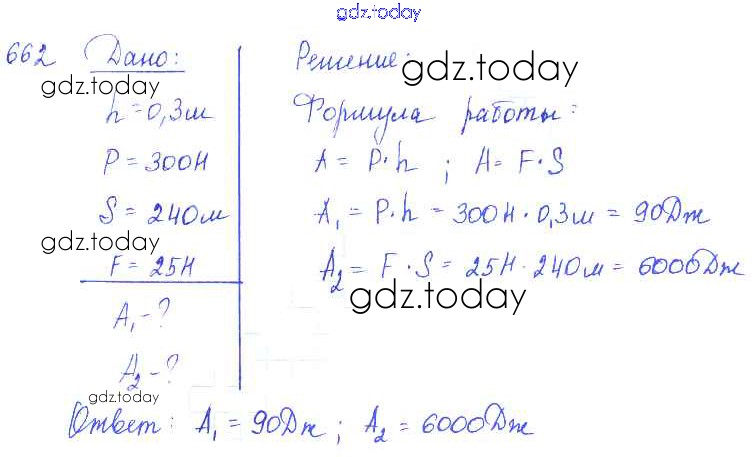 gdz.today
662 Дано:
gdz.today
h = 0,3м
P = 300Н
S = 240м
gdz.today
F = 25Н
A₁ - ?
A₂ - ?
gdz.today
Решение:
gdz.today
Формула работы:
A = P·h ; A = F·S
A₁ = P·h = 300Н · 0,3м = 90Дж
A₂ = F·S = 25Н · 240м = 6000Дж
gdz.today
Ответ: A₁ = 90Дж; A₂ = 6000Дж